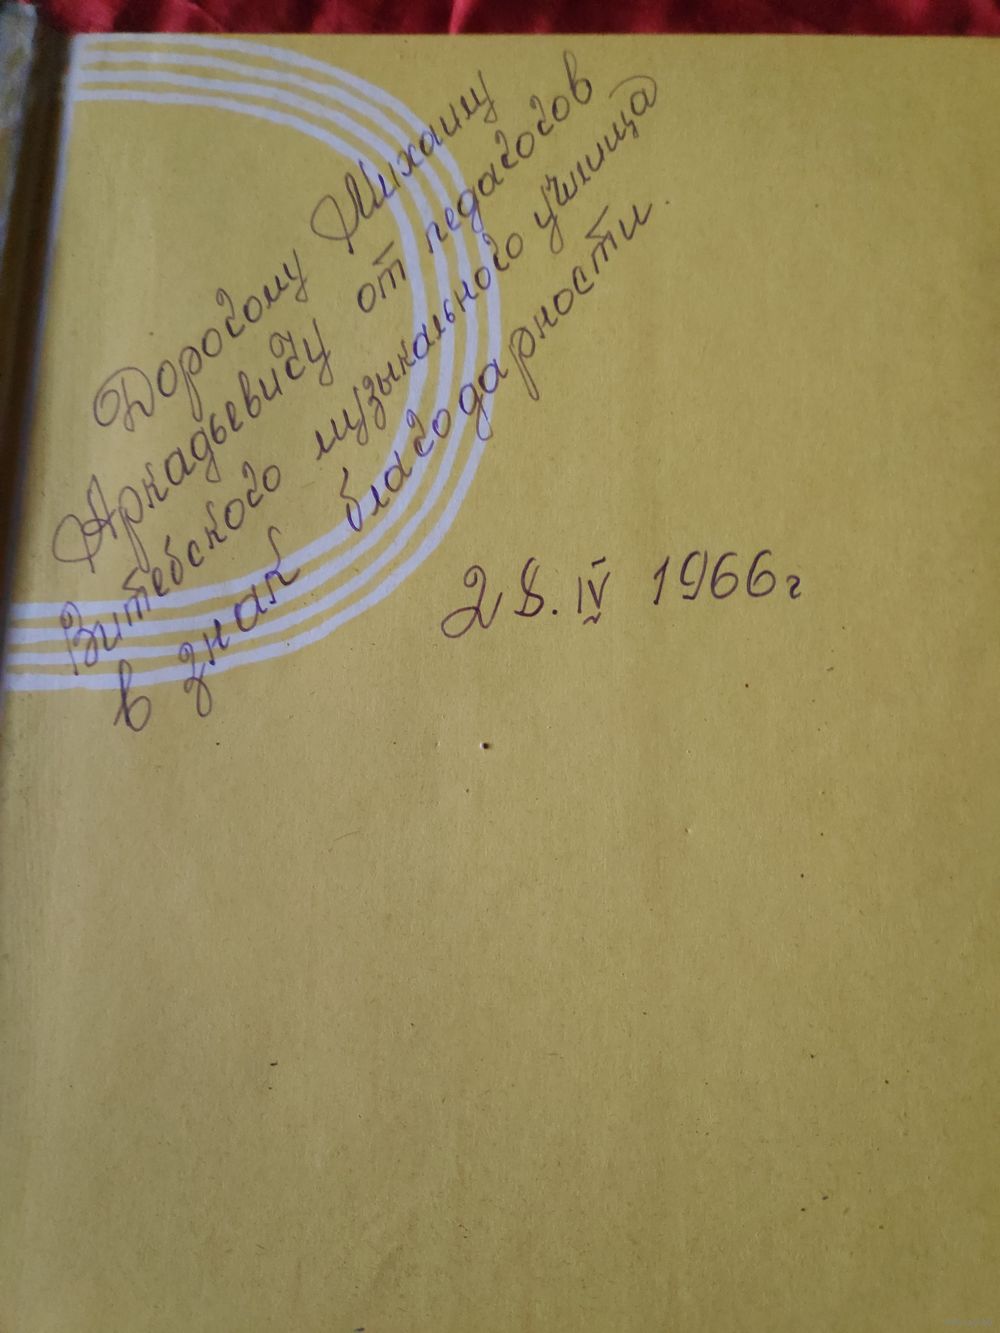 Дорогому Михаилу
Аркадьевичу от педагогов
Витебского музыкального училища
в знак благодарности.
28. IV 1966г